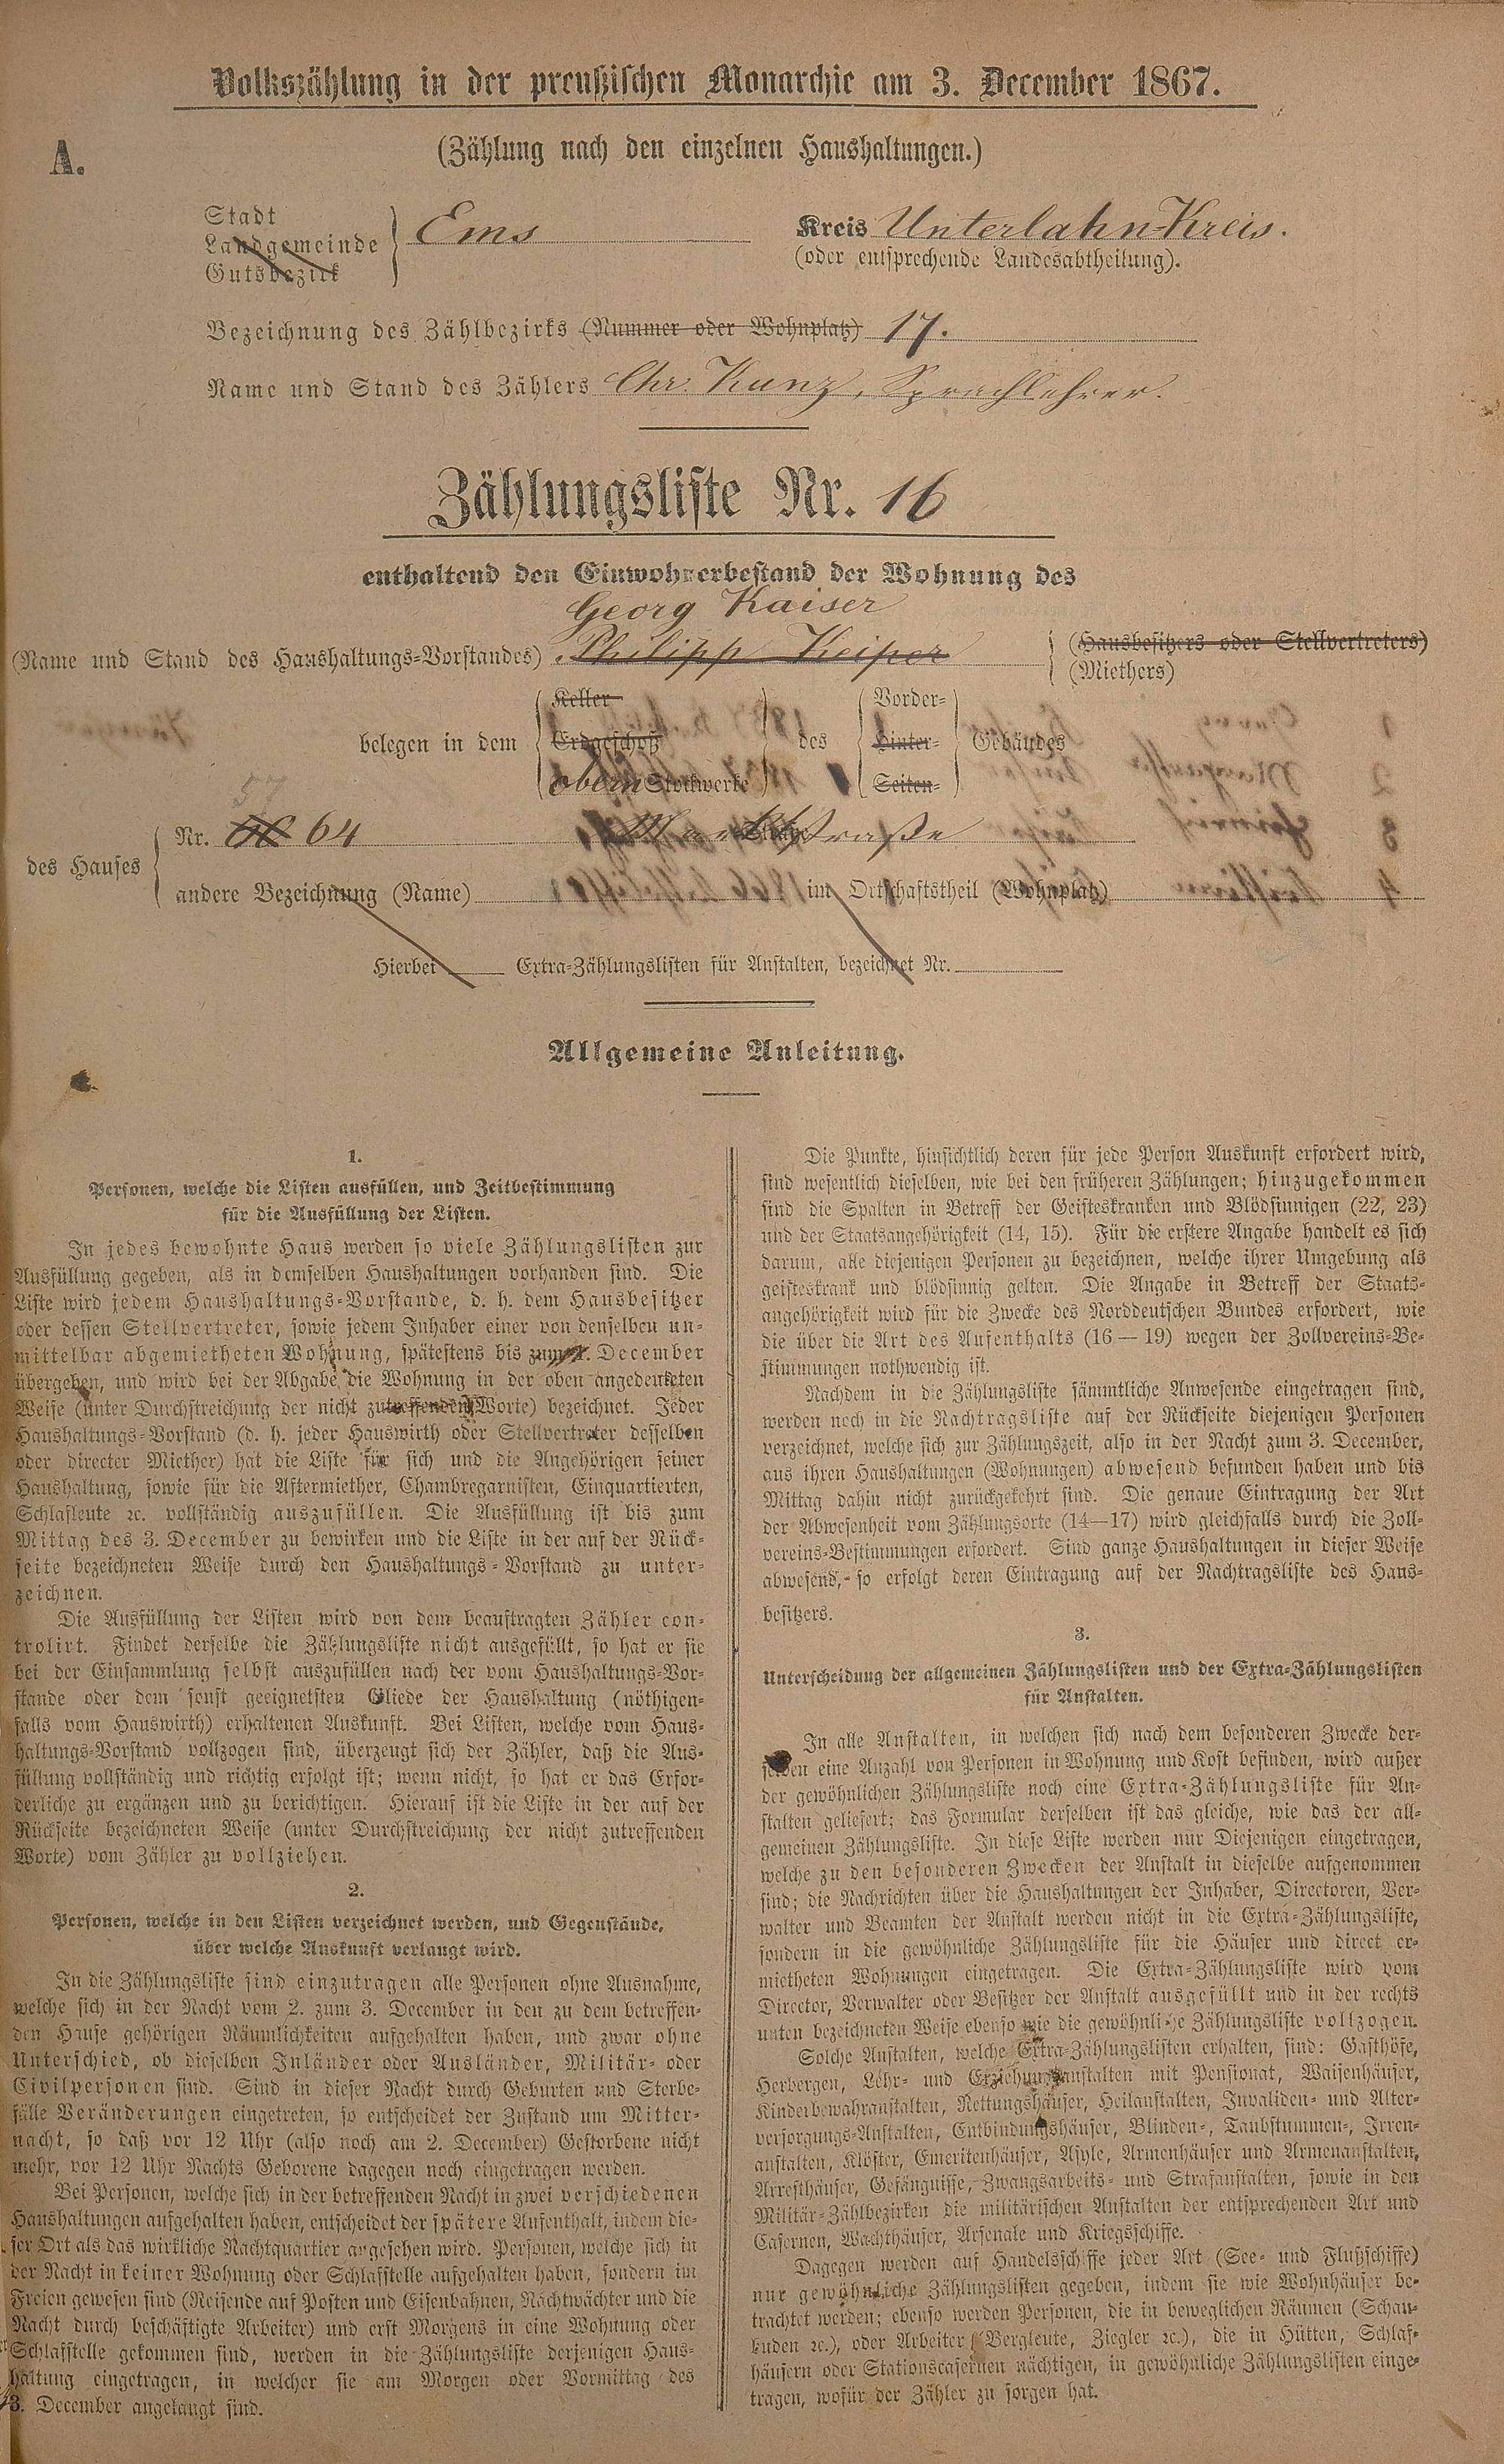 Volkszählung in der preußischen Monarchie am 3. December 1867.
A.
(Zählung nach den einzelnen Haushaltungen.)
Stadt
Landgemeinde
Gutsbezirk
Ems
Kreis Unterlahn-Kreis.
(oder entsprechende Landesabtheilung).
Bezeichnung des Zählbezirks (Nummer oder Wohnplatz) 17.
Name und Stand des Zählers Chr. Kunz, Sprachlehrer.
Zählungsliste Nr. 16
enthaltend den Einwohnerbestand der Wohnung des
Georg Kaiser
(Name und Stand des Haushaltungs-Vorstandes) Philipp Keiper
(Hausbesitzers oder Stellvertreters)
(Miethers)
belegen in dem
Keller
Erdgeschoß
obern Stockwerke
des
Vorder-
Hinter-
Seiten-
Gebäudes
57
des Hauses
Nr. 64 Marktstraße
andere Bezeichnung (Name) im Ortschaftstheil (Wohnplatz)
Hierbei Extra-Zählungslisten für Anstalten, bezeichnet Nr.
Allgemeine Anleitung.
1.
Personen, welche die Listen ausfüllen, und Zeitbestimmung
für die Ausfüllung der Listen.
In jedes bewohnte Haus werden so viele Zählungslisten zur
Ausfüllung gegeben, als in demselben Haushaltungen vorhanden sind. Die
Liste wird jedem Haushaltungs-Vorstande, d. h. dem Hausbesitzer
oder dessen Stellvertreter, sowie jedem Inhaber einer von denselben un-
mittelbar abgemietheten Wohnung, spätestens bis zum December
übergeben, und wird bei der Abgabe die Wohnung in der oben angedeuteten
Weise (unter Durchstreichung der nicht zutreffenden Worte) bezeichnet. Jeder
Haushaltungs-Vorstand (d. h. jeder Hauswirth oder Stellvertreter desselben
oder directer Miether) hat die Liste für sich und die Angehörigen seiner
Haushaltung, sowie für die Aftermiether, Chambregarnisten, Einquartierten,
Schlafleute ꝛc. vollständig auszufüllen. Die Ausfüllung ist bis zum
Mittag des 3. December zu bewirken und die Liste in der auf der Rück-
seite bezeichneten Weise durch den Haushaltungs-Vorstand zu unter-
zeichnen.
Die Ausfüllung der Listen wird von dem beauftragten Zähler con-
trolirt. Findet derselbe die Zählungsliste nicht ausgefüllt, so hat er sie
bei der Einsammlung selbst auszufüllen nach der vom Haushaltungs-Vor-
stande oder dem sonst geeignetsten Gliede der Haushaltung (nöthigen-
falls vom Hauswirth) erhaltenen Auskunft. Bei Listen, welche vom Haus-
haltungs-Vorstand vollzogen sind, überzeugt sich der Zähler, daß die Aus-
füllung vollständig und richtig erfolgt ist; wenn nicht, so hat er das Erfor-
derliche zu ergänzen und zu berichtigen. Hierauf ist die Liste in der auf der
Rückseite bezeichneten Weise (unter Durchstreichung der nicht zutreffenden
Worte) vom Zähler zu vollziehen.
2.
Personen, welche in den Listen verzeichnet werden, und Gegenstände,
über welche Auskunft verlangt wird.
In die Zählungsliste sind einzutragen alle Personen ohne Ausnahme,
welche sich in der Nacht vom 2. zum 3. December in den zu dem betreffen-
den Hause gehörigen Räumlichkeiten aufgehalten haben, und zwar ohne
Unterschied, ob dieselben Inländer oder Ausländer, Militär- oder
Civilpersonen sind. Sind in dieser Nacht durch Geburten und Sterbe-
fälle Veränderungen eingetreten, so entscheidet der Zustand um Mitter-
nacht, so daß vor 12 Uhr (also noch am 2. December) Gestorbene nicht
mehr, vor 12 Uhr Nachts Geborene dagegen noch eingetragen werden.
Bei Personen, welche sich in der betreffenden Nacht in zwei verschiedenen
Haushaltungen aufgehalten haben, entscheidet der spätere Aufenthalt, indem die-
ser Ort als das wirkliche Nachtquartier angesehen wird. Personen, welche sich in
der Nacht in keiner Wohnung oder Schlafstelle aufgehalten haben, sondern im
Freien gewesen sind (Reisende auf Posten und Eisenbahnen, Nachtwächter und die
Nacht durch beschäftigte Arbeiter) und erst Morgens in eine Wohnung oder
Schlafstelle gekommen sind, werden in die Zählungsliste derjenigen Haus-
haltung eingetragen, in welcher sie am Morgen oder Vormittag des
3. December angelangt sind.
Die Punkte, hinsichtlich deren für jede Person Auskunft erfordert wird,
sind wesentlich dieselben, wie bei den früheren Zählungen; hinzugekommen
sind die Spalten in Betreff der Geisteskranken und Blödsinnigen (22, 23)
und der Staatsangehörigkeit (14, 15). Für die erstere Angabe handelt es sich
darum, alle diejenigen Personen zu bezeichnen, welche ihrer Umgebung als
geisteskrank und blödsinnig gelten. Die Angabe in Betreff der Staats-
angehörigkeit wird für die Zwecke des Norddeutschen Bundes erfordert, wie
die über die Art des Aufenthalts (16—19) wegen der Zollvereins-Be-
stimmungen nothwendig ist.
Nachdem in die Zählungsliste sämmtliche Anwesende eingetragen sind,
werden noch in die Nachtragsliste auf der Rückseite diejenigen Personen
verzeichnet, welche sich zur Zählungszeit, also in der Nacht zum 3. December,
aus ihren Haushaltungen (Wohnungen) abwesend befunden haben und bis
Mittag dahin nicht zurückgekehrt sind. Die genaue Eintragung der Art
der Abwesenheit vom Zählungsorte (14—17) wird gleichfalls durch die Zoll-
vereins-Bestimmungen erfordert. Sind ganze Haushaltungen in dieser Weise
abwesend, so erfolgt deren Eintragung auf der Nachtragsliste des Haus-
besitzers.
3.
Unterscheidung der allgemeinen Zählungslisten und der Extra-Zählungslisten
für Anstalten.
In alle Anstalten, in welchen sich nach dem besonderen Zwecke der-
selben eine Anzahl von Personen in Wohnung und Kost befinden, wird außer
der gewöhnlichen Zählungsliste noch eine Extra-Zählungsliste für An-
stalten geliefert; das Formular derselben ist das gleiche, wie das der all-
gemeinen Zählungsliste. In diese Liste werden nur Diejenigen eingetragen,
welche zu den besonderen Zwecken der Anstalt in dieselbe aufgenommen
sind; die Nachrichten über die Haushaltungen der Inhaber, Directoren, Ver-
walter und Beamten der Anstalt werden nicht in die Extra-Zählungsliste,
sondern in die gewöhnliche Zählungsliste für die Häuser und direct er-
mietheten Wohnungen eingetragen. Die Extra-Zählungsliste wird vom
Director, Verwalter oder Besitzer der Anstalt ausgefüllt und in der rechts
unten bezeichneten Weise ebenso wie die gewöhnliche Zählungsliste vollzogen.
Solche Anstalten, welche Extra-Zählungslisten erhalten, sind: Gasthöfe,
Herbergen, Lehr- und Erziehungsanstalten mit Pensionat, Waisenhäuser,
Kinderbewahranstalten, Rettungshäuser, Heilanstalten, Invaliden- und Alter-
versorgungs-Anstalten, Entbindungshäuser, Blinden-, Taubstummen-, Irren-
anstalten, Klöster, Emeritenhäuser, Asyle, Armenhäuser und Armenanstalten,
Arresthäuser, Gefängnisse, Zwangsarbeits- und Strafanstalten, sowie in den
Militär-Zählbezirken die militärischen Anstalten der entsprechenden Art und
Casernen, Wachthäuser, Arsenale und Kriegsschiffe.
Dagegen werden auf Handelsschiffe jeder Art (See- und Flußschiffe)
nur gewöhnliche Zählungslisten gegeben, indem sie wie Wohnhäuser be-
trachtet werden; ebenso werden Personen, die in beweglichen Räumen (Schau-
buden ꝛc.), oder Arbeiter (Bergleute, Ziegler ꝛc.), die in Hütten, Schlaf-
häusern oder Stationscasernen nächtigen, in gewöhnliche Zählungslisten einge-
tragen, wofür der Zähler zu sorgen hat.